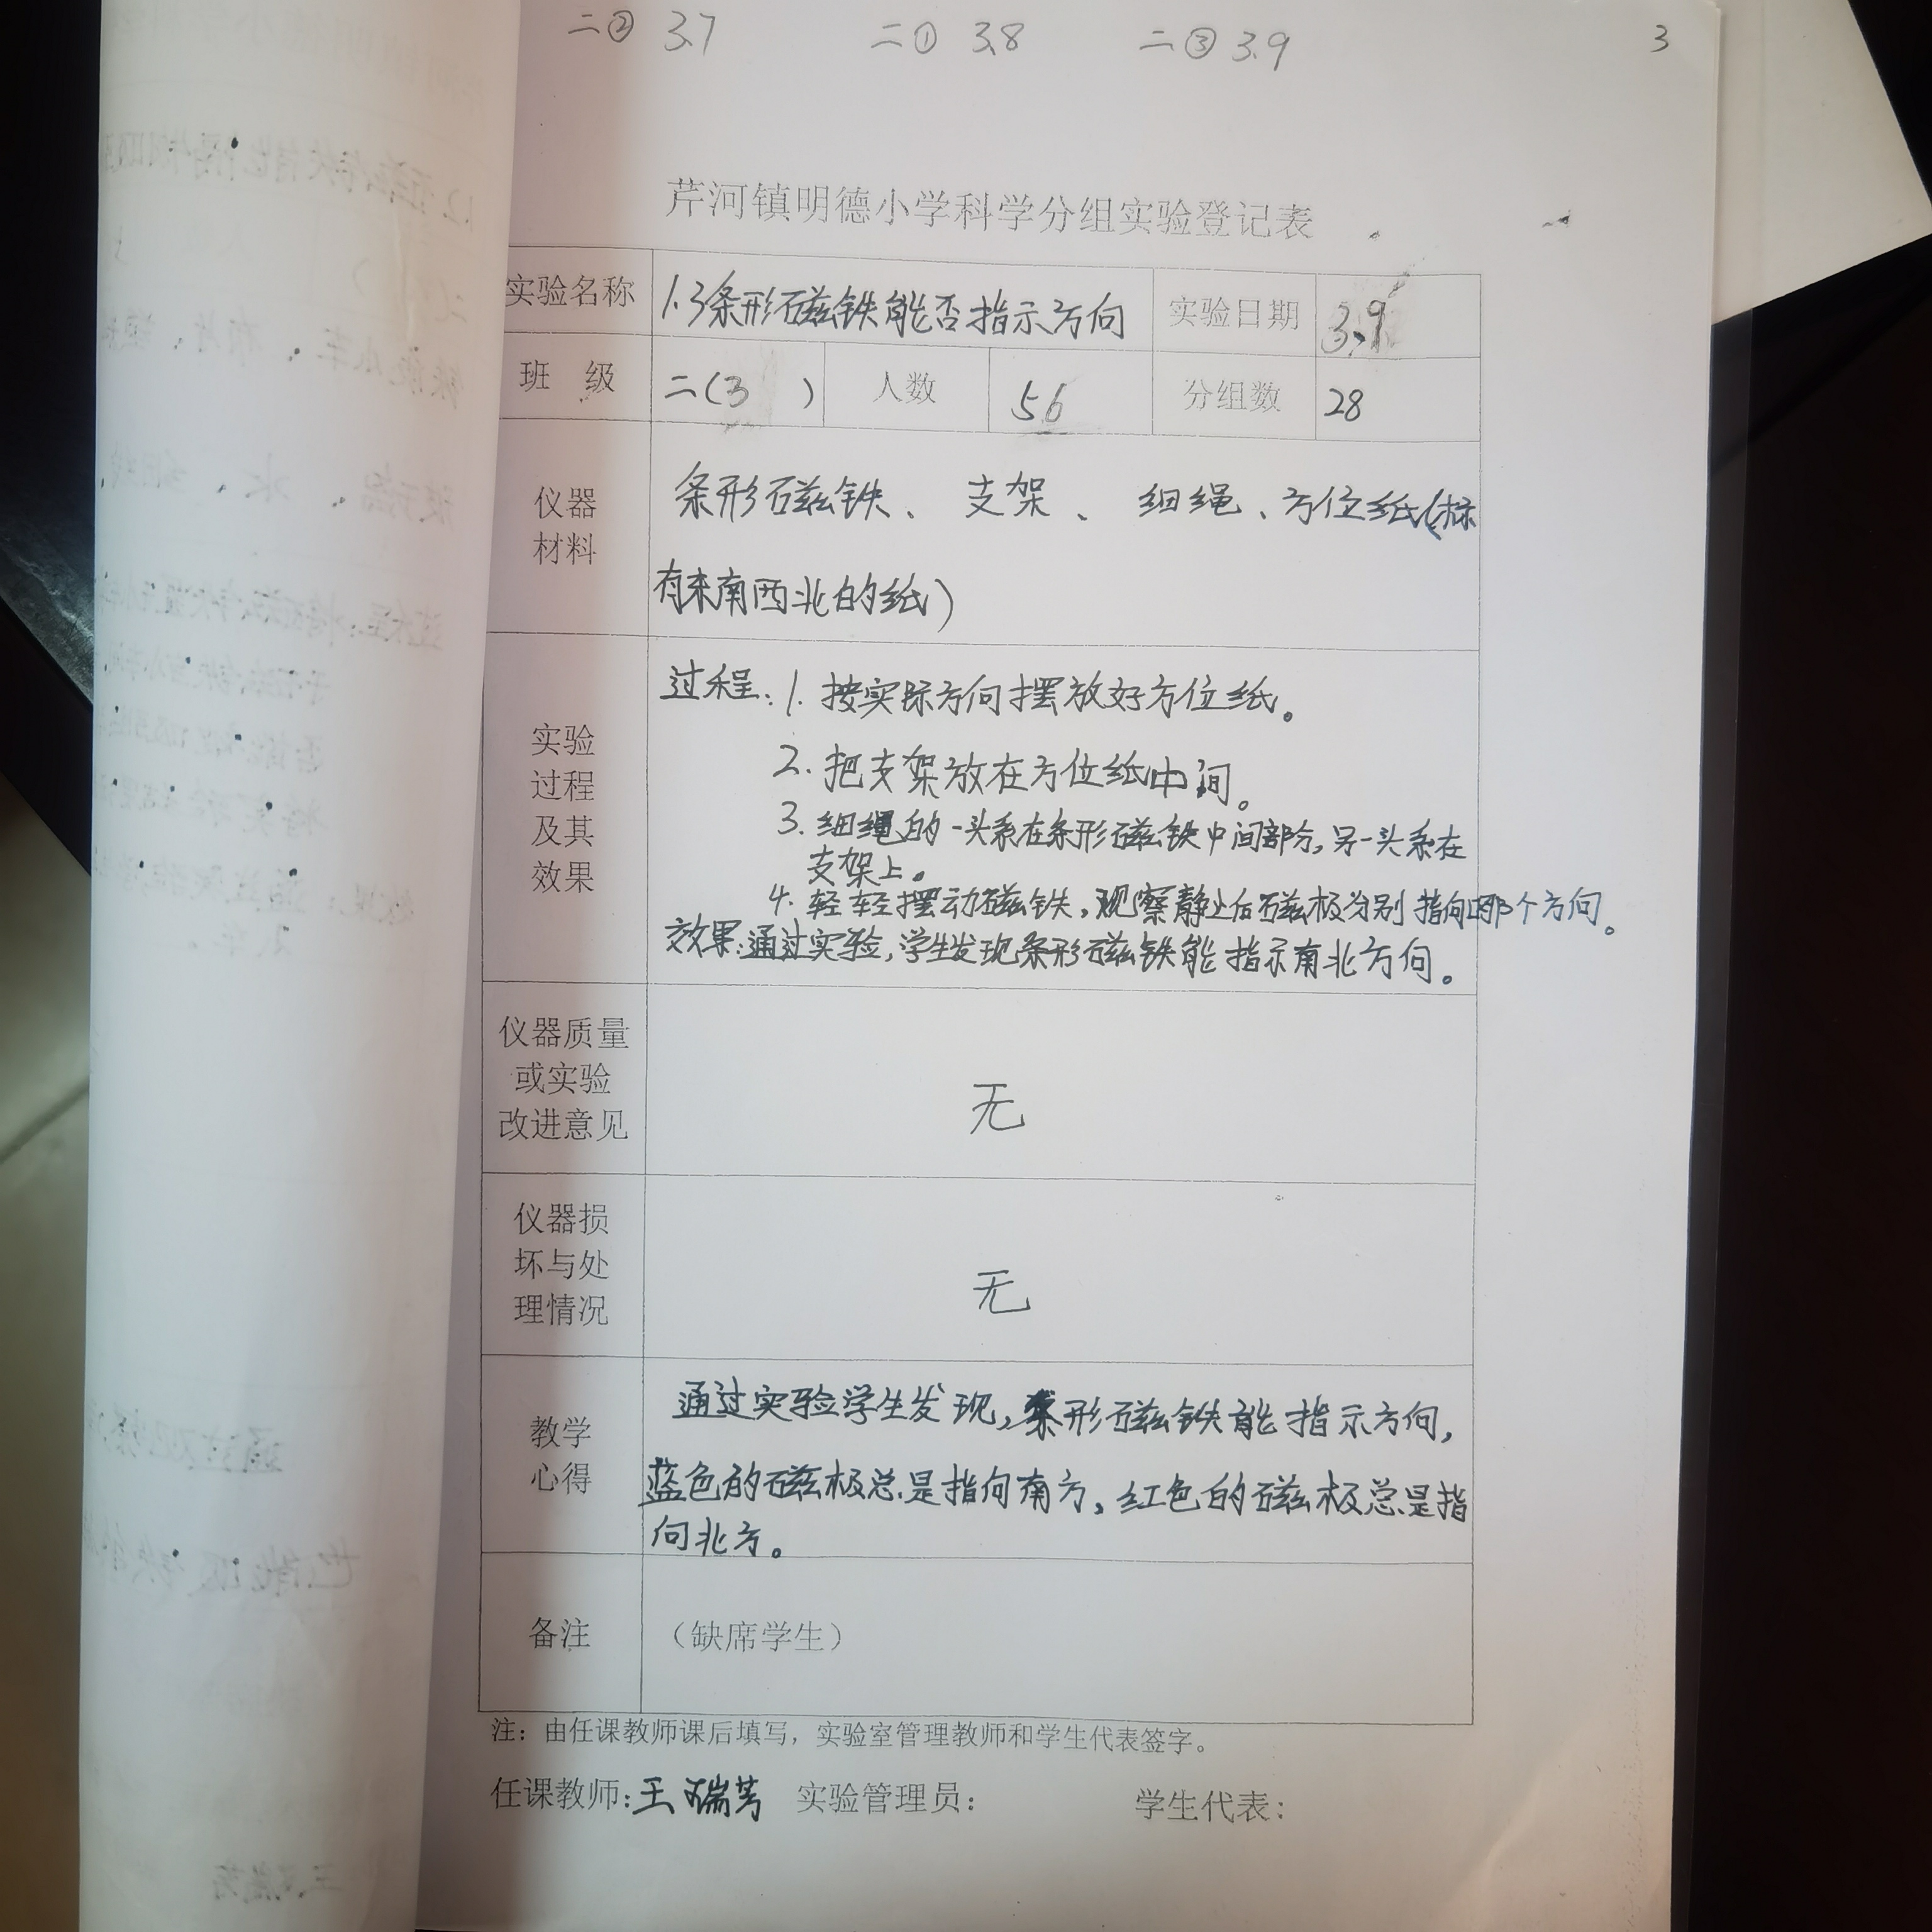 二② 3.7 二① 3.8 二③ 3.9 3
芹河镇明德小学科学分组实验登记表
实验名称 1.3条形磁铁能否指示方向 实验日期 3.9
班 级 二(3 ) 人数 56 分组数 28
仪器
材料
条形磁铁、 支架、 细绳、方位纸(标
有东南西北的纸)
实验
过程
及其
效果
过程:1. 按实际方向摆放好方位纸。
2. 把支架放在方位纸中间。
3. 细绳的一头系在条形磁铁中间部分,另一头系在
支架上。
4. 轻轻摆动磁铁,观察静止后磁极分别指向哪个方向。
效果:通过实验,学生发现条形磁铁能指示南北方向。
仪器质量
或实验
改进意见
无
仪器损
坏与处
理情况
无
教学
心得
通过实验学生发现,条形磁铁能指示方向,
蓝色的磁极总是指向南方,红色的磁极总是指
向北方。
备注 (缺席学生)
注:由任课教师课后填写,实验室管理教师和学生代表签字。
任课教师:王瑞芳 实验管理员: 学生代表: